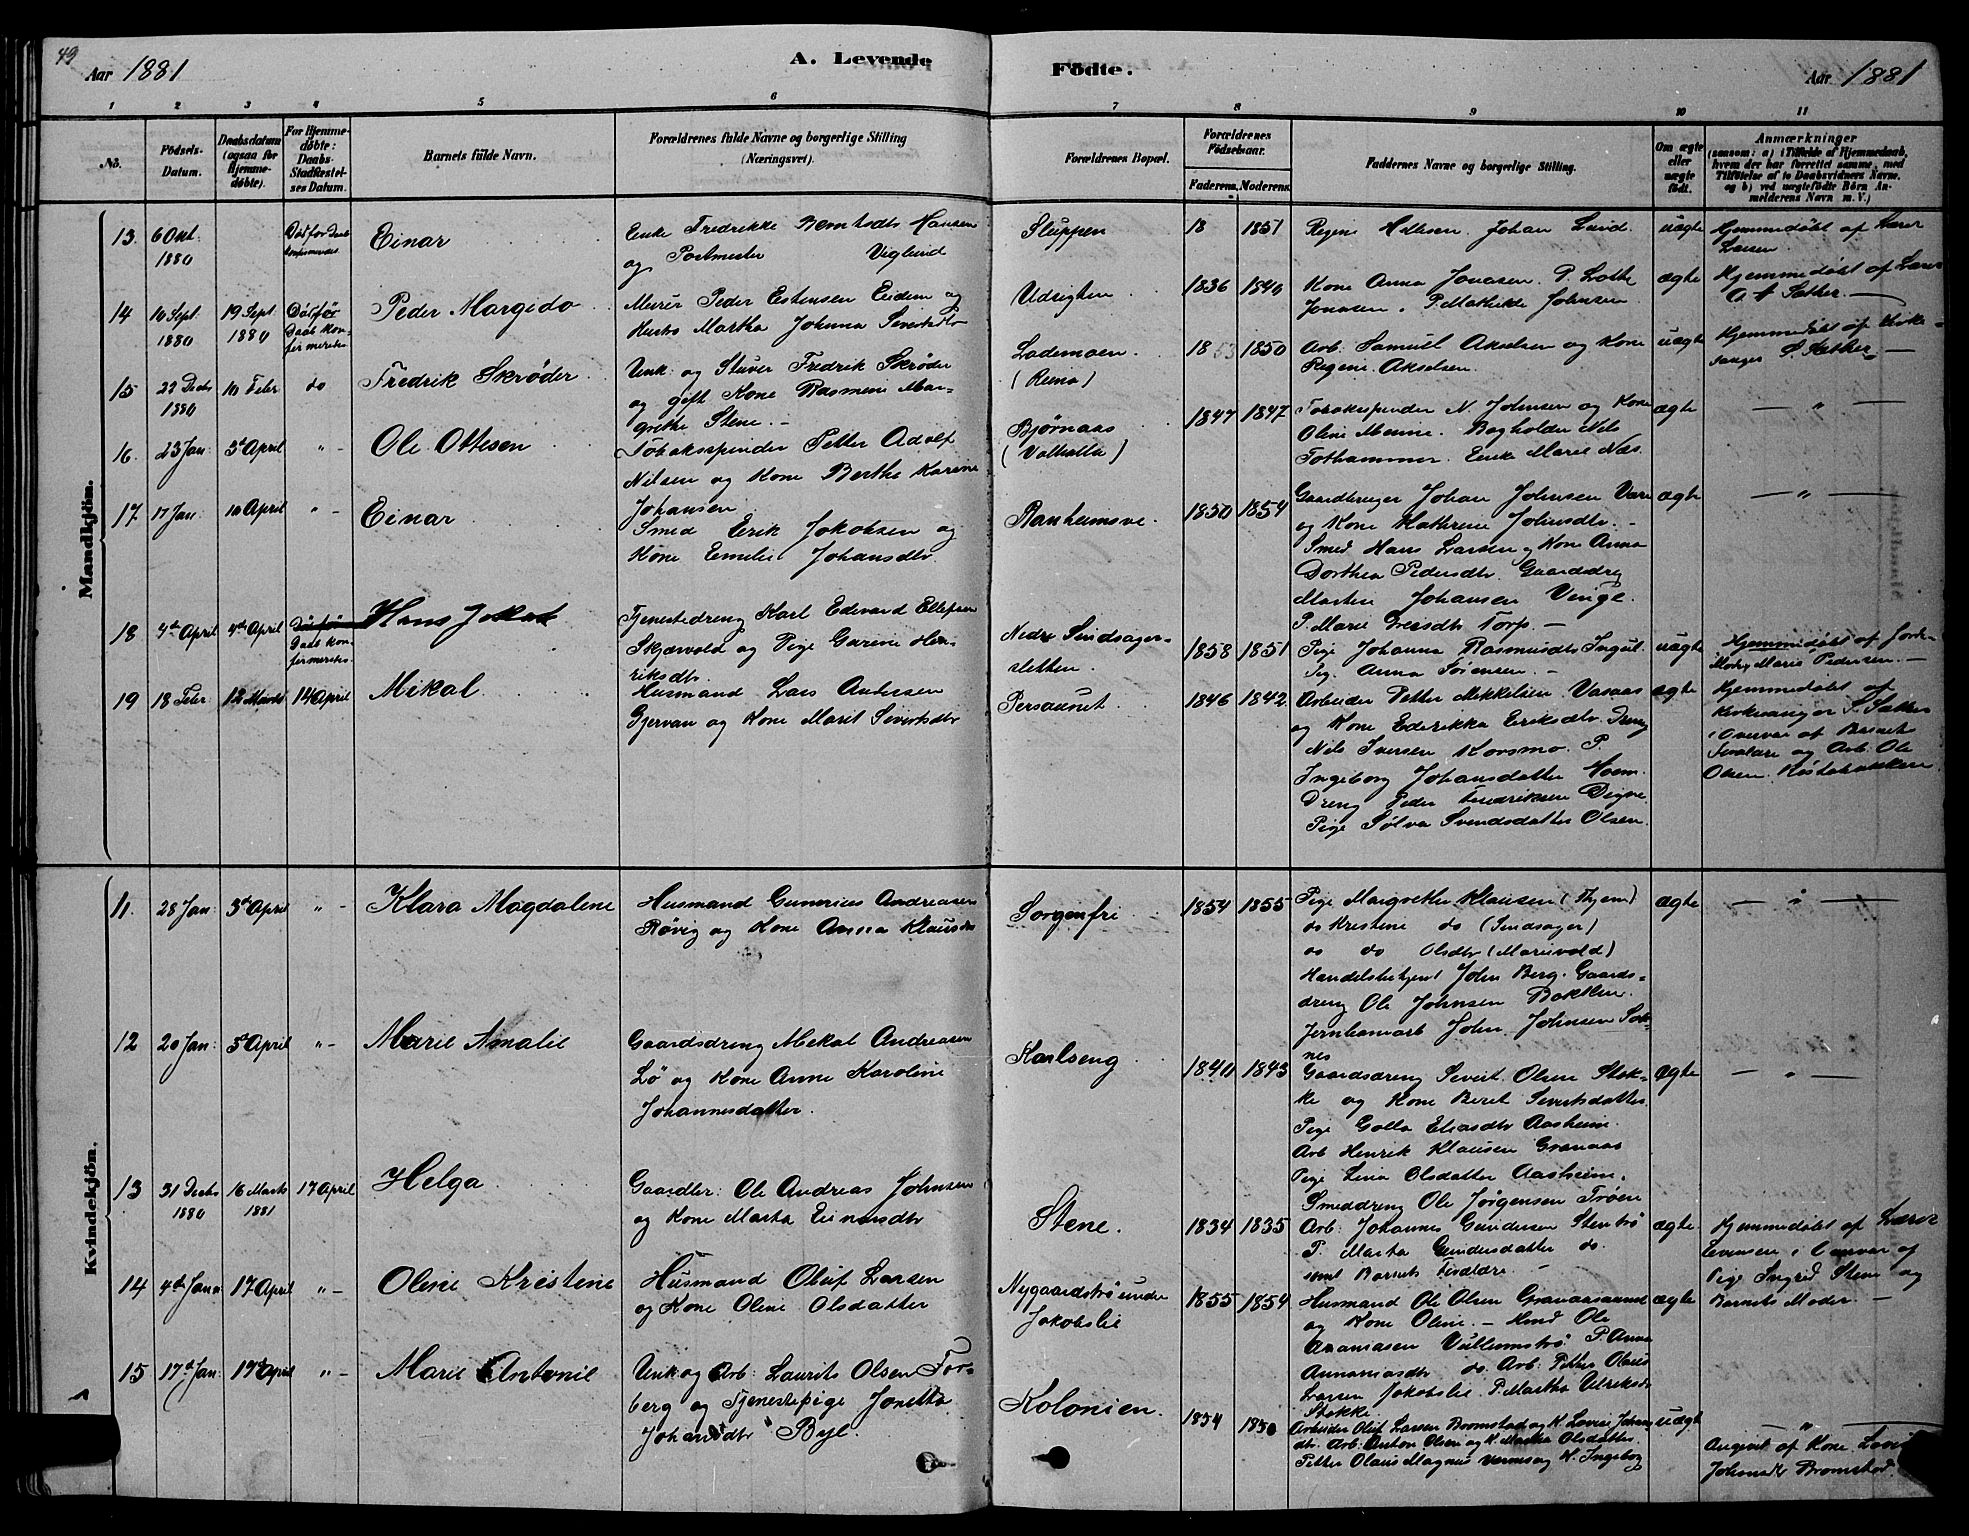 49
Aar 1881
A. Levende
Födte.
Aar 1881
1 2 3 4 5 6 7 8 9 10 11
No.
Födsels-
Datum.
Daabsdatum
(ogsaa for
Hjemme-
döbte).
For Hjemme-
döbte:
Daabs-
Stadfæstel-
ses Datum.
Barnets fulde Navn.
Forældrenes fulde Navne og borgerlige Stilling
(Næringsvei).
Forældrenes Bopæl.
Forældrenes
Födselsaar.
Faderens. Moderens.
Faddernes Navne og borgerlige Stilling.
Om ægte
eller
uægte
födt.
Anmærkninger
(saasom: a) i Tilfælde af Hjemmedaab,
hvem der har forrettet samme, med
Tilföielse af to Daabsvidners Navne,
og b) ved uægtefödte Börn An-
melderens Navn m. V.)
Mandkjön.
13. 6 Okt.
1880
Einar
Enke Fredrikke Berntsdtr Hansen
og Postmester Viglund
Sluppen
18 1851
Regine Johan Lund
uægte
Hjemmedøbt af
Larsen
14 10 Sept. 1880
19 Sept 1880
Død før
Daab kon-
firmeret
Peder Margido
Murer Peder Estensen Eidem og
Hustro Martha Johanna Sivertsdtr
Udsigten
1836 1840
Kone Anna Jonasen. P. Lotte
Jonasen. P. Mathilde Johnsen
ægte
Hjemmedøbt af
Sæther
15 22 Decbr 1880
10 Febr
do
Fredrik Skrøder
Unk. og Stuver Fredrik Skrøder
og gift Kone Rasmine Mar-
grethe Stene.
Lademoen
(Reina)
1853 1850
Arb. Samuel Akselsen og Kone
Regine Akselsen
uægte
Hjemmedøbt af Kirke-
sanger S. Sæther
16. 23 Jan: 3d April " -
Ole Ottesen
Tobaksspinder Petter Adolf
Nilsen og Kone Berthe Karine
Johansen
Bjørnaas
(Valhalla)
1847 1847
Tobakspinder N. Johnsen og Kone
Oline Bogholder Nils
Tothammer. Enke Marie Næs.
ægte
— " —
17 17 Jan: 10 April " -
Einar
Smed Erik Jakobsen og
Kone Emelie Johansdtr
Ranheimsve.
1850 1854
Gaardbruger Johan Johnsen Væra
og Kone Kathrine Johnsdtr.
Smed Hans Larsen og Kone Anna
Dorthea Pedersdtr. Gaardsdrg
Martin Johansen Venge.
P. Marie Torp. —
ægte
— " —
18 4de April 4de April
Død før
Daab kon-
firmeret
Hans Jakob
Tjenestedreng Karl Edevard Ellefsen
Skjærvold og Pige Gurine Hen-
riksdtr.
Nedre Sindsager-
sletten.
1858 1851
Pige Johanna Rasmusdtr
Pig. Anna Sørensen. —
uægte
Hjemmedøbt af Jorde-
moder Marie Pedersen. —
19 18 Febr 12 Marts 14 April
Mikal
Husmand Lars Andersen
Gjervan og Kone Marit Sivertsdtr
Persaunet
1846 1842
Arbeider Petter Mikkelsen Vasaas
og Kone Ederikka Eriksdtr. Dreng
Nils Iversen Korsmo. P.
Ingeborg Johansdatter Moem.
Dreng Peder Fredriksen Digre
Pige Sølva Svendsdatter Olsen.
ægte
Hjemmedøbt af
Kirkesanger S. Sæther
i Overvær af Barnets
Forældre og Arb. Ole
Olsen
Kvindekjön.
11. 28 Jan: 3d April " -
Klara Magdalene
Husmand Gunerius Andreasen
Røvig og Kone Anna Klausdtr
Sorgenfri
1854 1855
Pige Margrethe Klausen (Thjem)
do Kristine do (Sindsager)
do do Olsdtr (Marievold)
Handelsbetjent John Berg. Gaards-
dreng Ole Johnsen Bakken.
Jernbanearb John Johnsen Sak-
nes
ægte
— " —
12 20 Jan: 3d April " -
Marie Amalie
Gaardsdreng Mekal Andreasen
Lø og Kone Anne Karoline
Johannesdatter.
Karlseng
1840 1843
Gaardsdreng Sivert Olsen Stok-
ke og Kone Beret Sivertsdatter
Pige Golla Eliasdtr Aasheim.
Arb Henrik Klausen Granaas
Pige Lina Olsdatter Aasheim.
Smeddreng Ole Jørgensen Trøen
ægte
— " —
13 31 Decbr 1880
16 Marts 1881
17 April
Helga
Gaardbr: Ole Andreas Johnsen
og Kone Marta Einarsdtr
Stene.
1834 1835
Arb. Johannes Gundersen Stentrø
P. Marta Gundersdatter do.
samt Barnets Forældre. —
ægte
Hjemmedøbt af Lærer
Evensen i Overvær af
Pige Ingrid Stene og
Barnets Moder. —
14 4de Janr 17 April " -
Oline Kristine
Husmand Oluf Larsen
og Kone Oline Olsdatter
Nygaardstrø under
Jakobslie
1855 1854
Husmand Ole Olsen Granaasaunet
og Kone Oline. — Hmd Ole
Ananiasen P. Anna
Ananiasdtr do. Arb. Petter Olaus
Larsen Jakobslie. P. Martha Ulriksdtr
Stokke
ægte
15 17de Jan: 17de April " -
Marie Antonie
Unk og Arb: Laurits Olsen Tor-
berg og Tjenestepige Jonetta
Johansdtr Bye.
Kolonien.
1854 1850
Arbeider Oluf Larsen Bromstad og K. Lovise Johans-
dtr. Arb. Anton Olsen og K. Marta Olsdatter.
Petter Olaus Magnus og K. Ingeborg
uægte
— " —
Angivet af Kone Lovise
Johansdtr Bromstad.